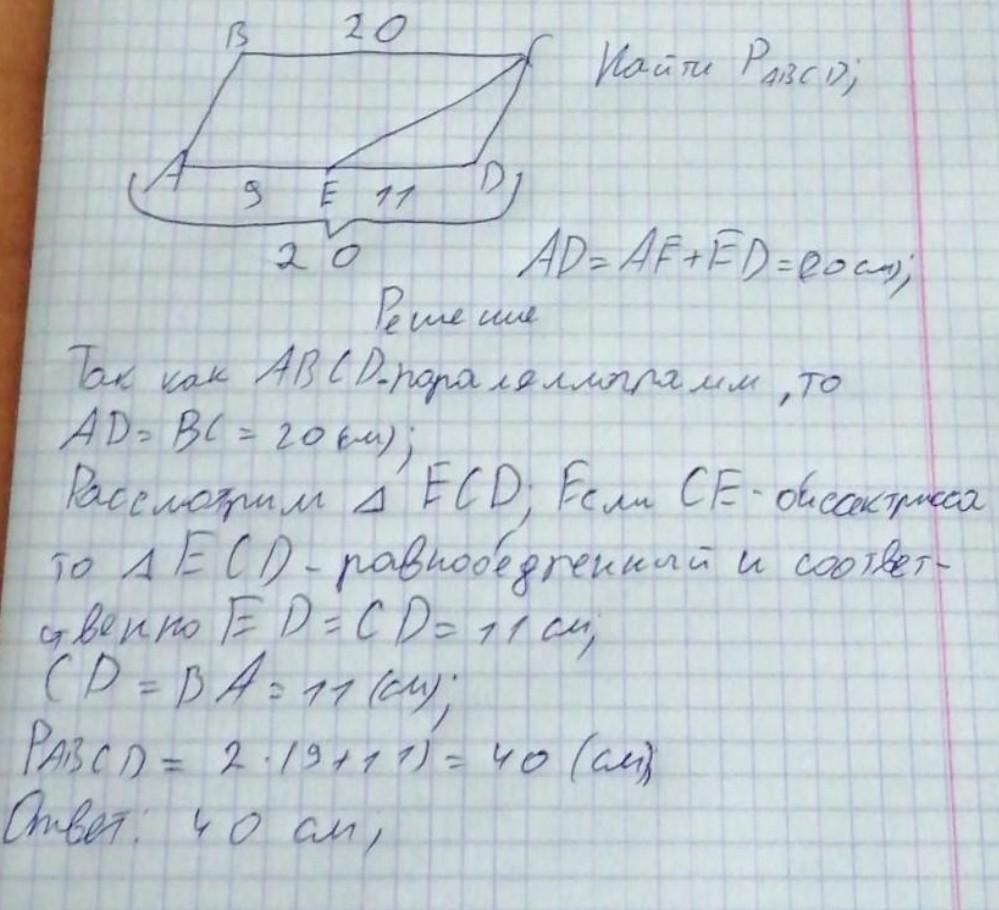 B 20 C
Найти PABCD;
A 9 E 11 D
20
AD = AE + ED = 20 см);
Решение
Так как ABCD - паралеллограмм, то
AD = BC = 20 см);
Рассмотрим Δ ECD; Если CE - биссектрисса
то Δ ECD - равнобедренный и соответ-
ственно ED = CD = 11 см;
CD = BA = 11 (см);
PABCD = 2 · (9 + 11) = 40 (см);
Ответ: 40 см;